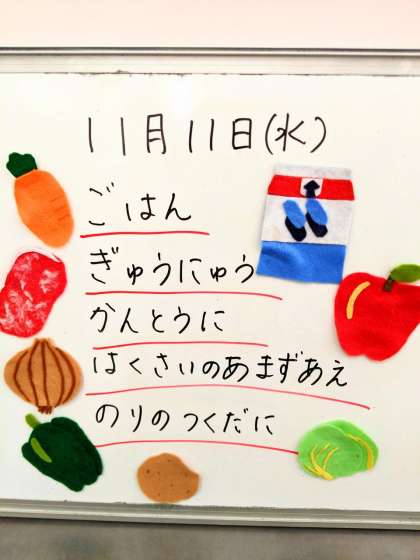 11月11日(水)
ごはん
ぎゅうにゅう
かんとうに
はくさいのあまずあえ
のりのつくだに